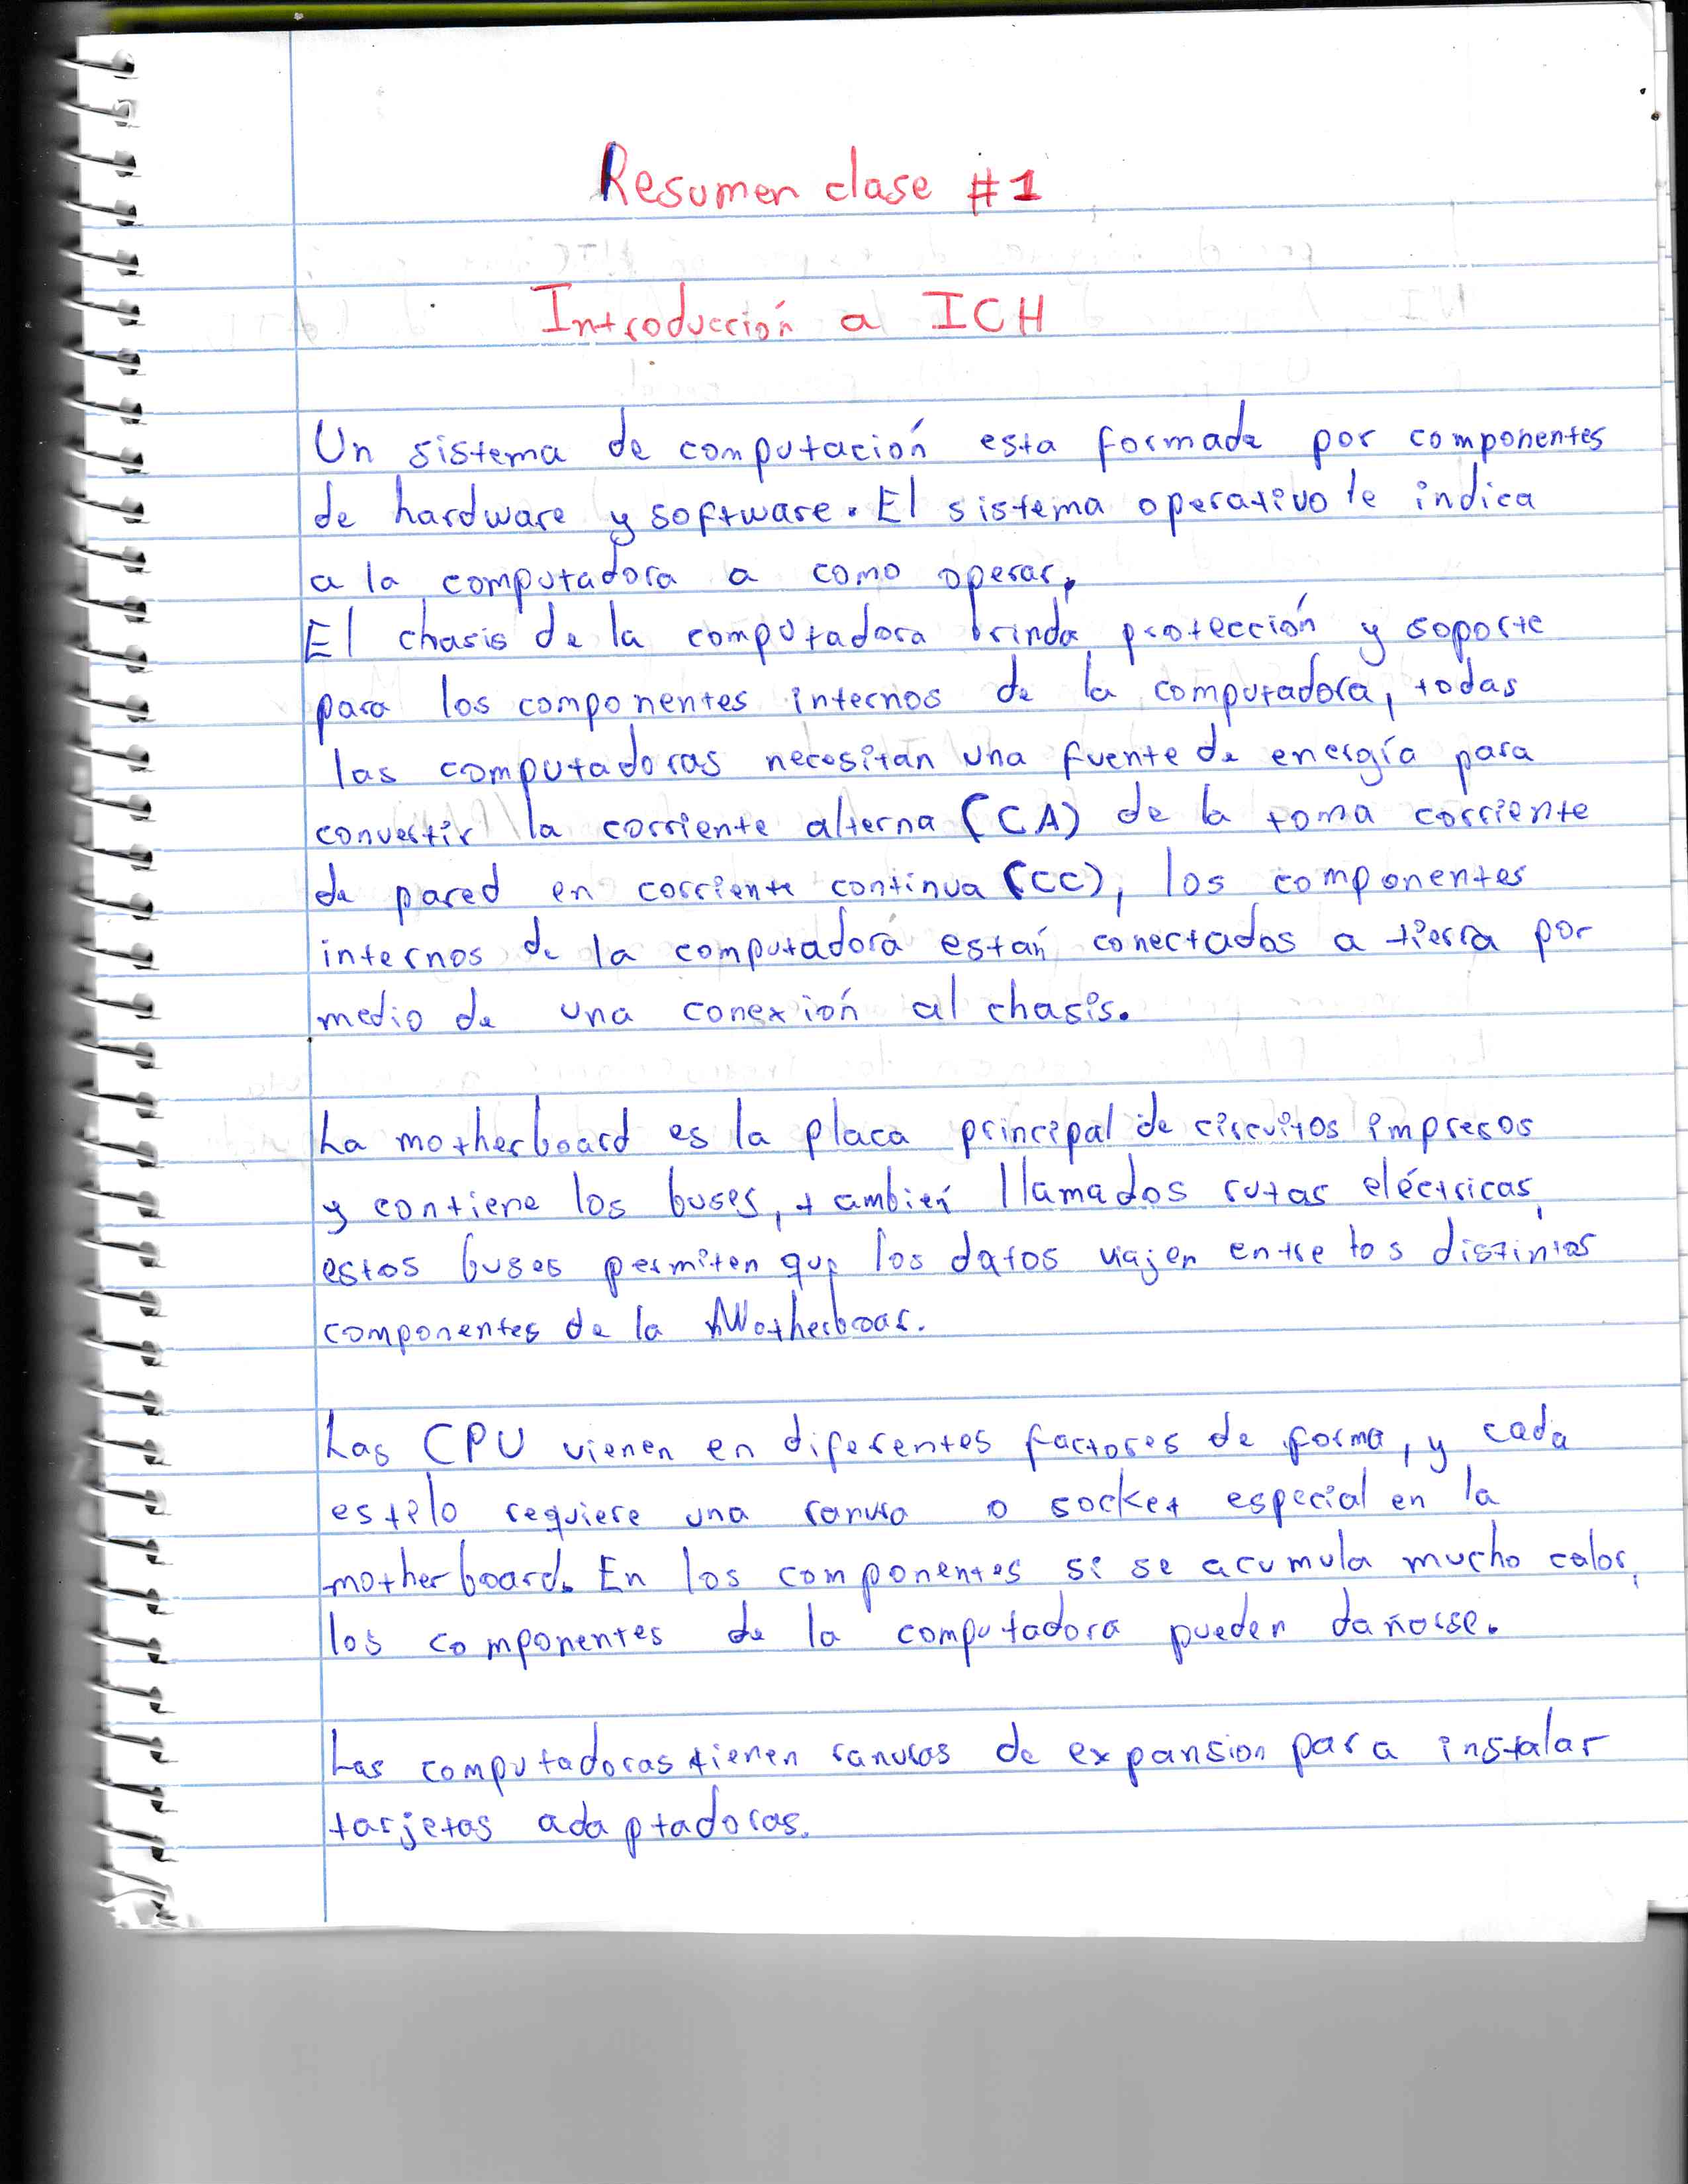 Resumen clase #1
Introducción a ICH
Un sistema de computación esta formada por componentes
de hardware y software. El sistema operativo le indica
a la computadora a como operar.
El chasis de la computadora brinda protección y soporte
para los componentes internos de la computadora, todas
las computadoras necesitan una fuente de energía para
convertir la corriente alterna (CA) de la toma corriente
de pared en corriente continua (CC), los componentes
internos de la computadora están conectados a tierra por
medio de una conexión al chasis.
La motherboard es la placa principal de circuitos impresos
y contiene los buses, también llamados rutas eléctricas,
estos buses permiten que los datos viajen entre los distintos
componentes de la Motherboar.
Las CPU vienen en diferentes factores de forma, y cada
estilo requiere una ranura o socket especial en la
motherboard. En los componentes si se acumula mucho calor,
los componentes de la computadora pueden dañarse.
Las computadoras tienen ranuras de expansion para instalar
tarjetas adaptadoras.